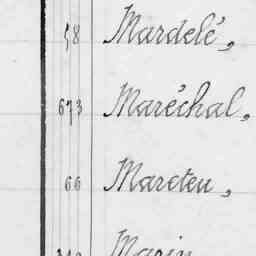 58 Mardelé,
673 Maréchal,
66 Marcteu,
Marin